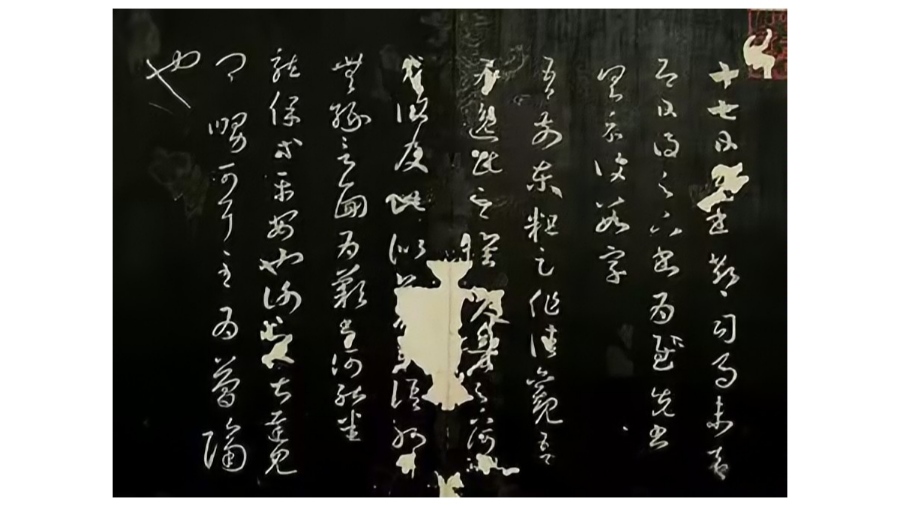 十七日先書郗司馬未去
即日得足下書為慰先書
以具示復數字
吾前東粗足作佳觀吾
為逸民之懷久矣足下何以
方復及此似夢中語耶
無緣言面為歎書何能悉
龍保等平安也謝之甚遲見
卿舅可耳至為簡隔
也